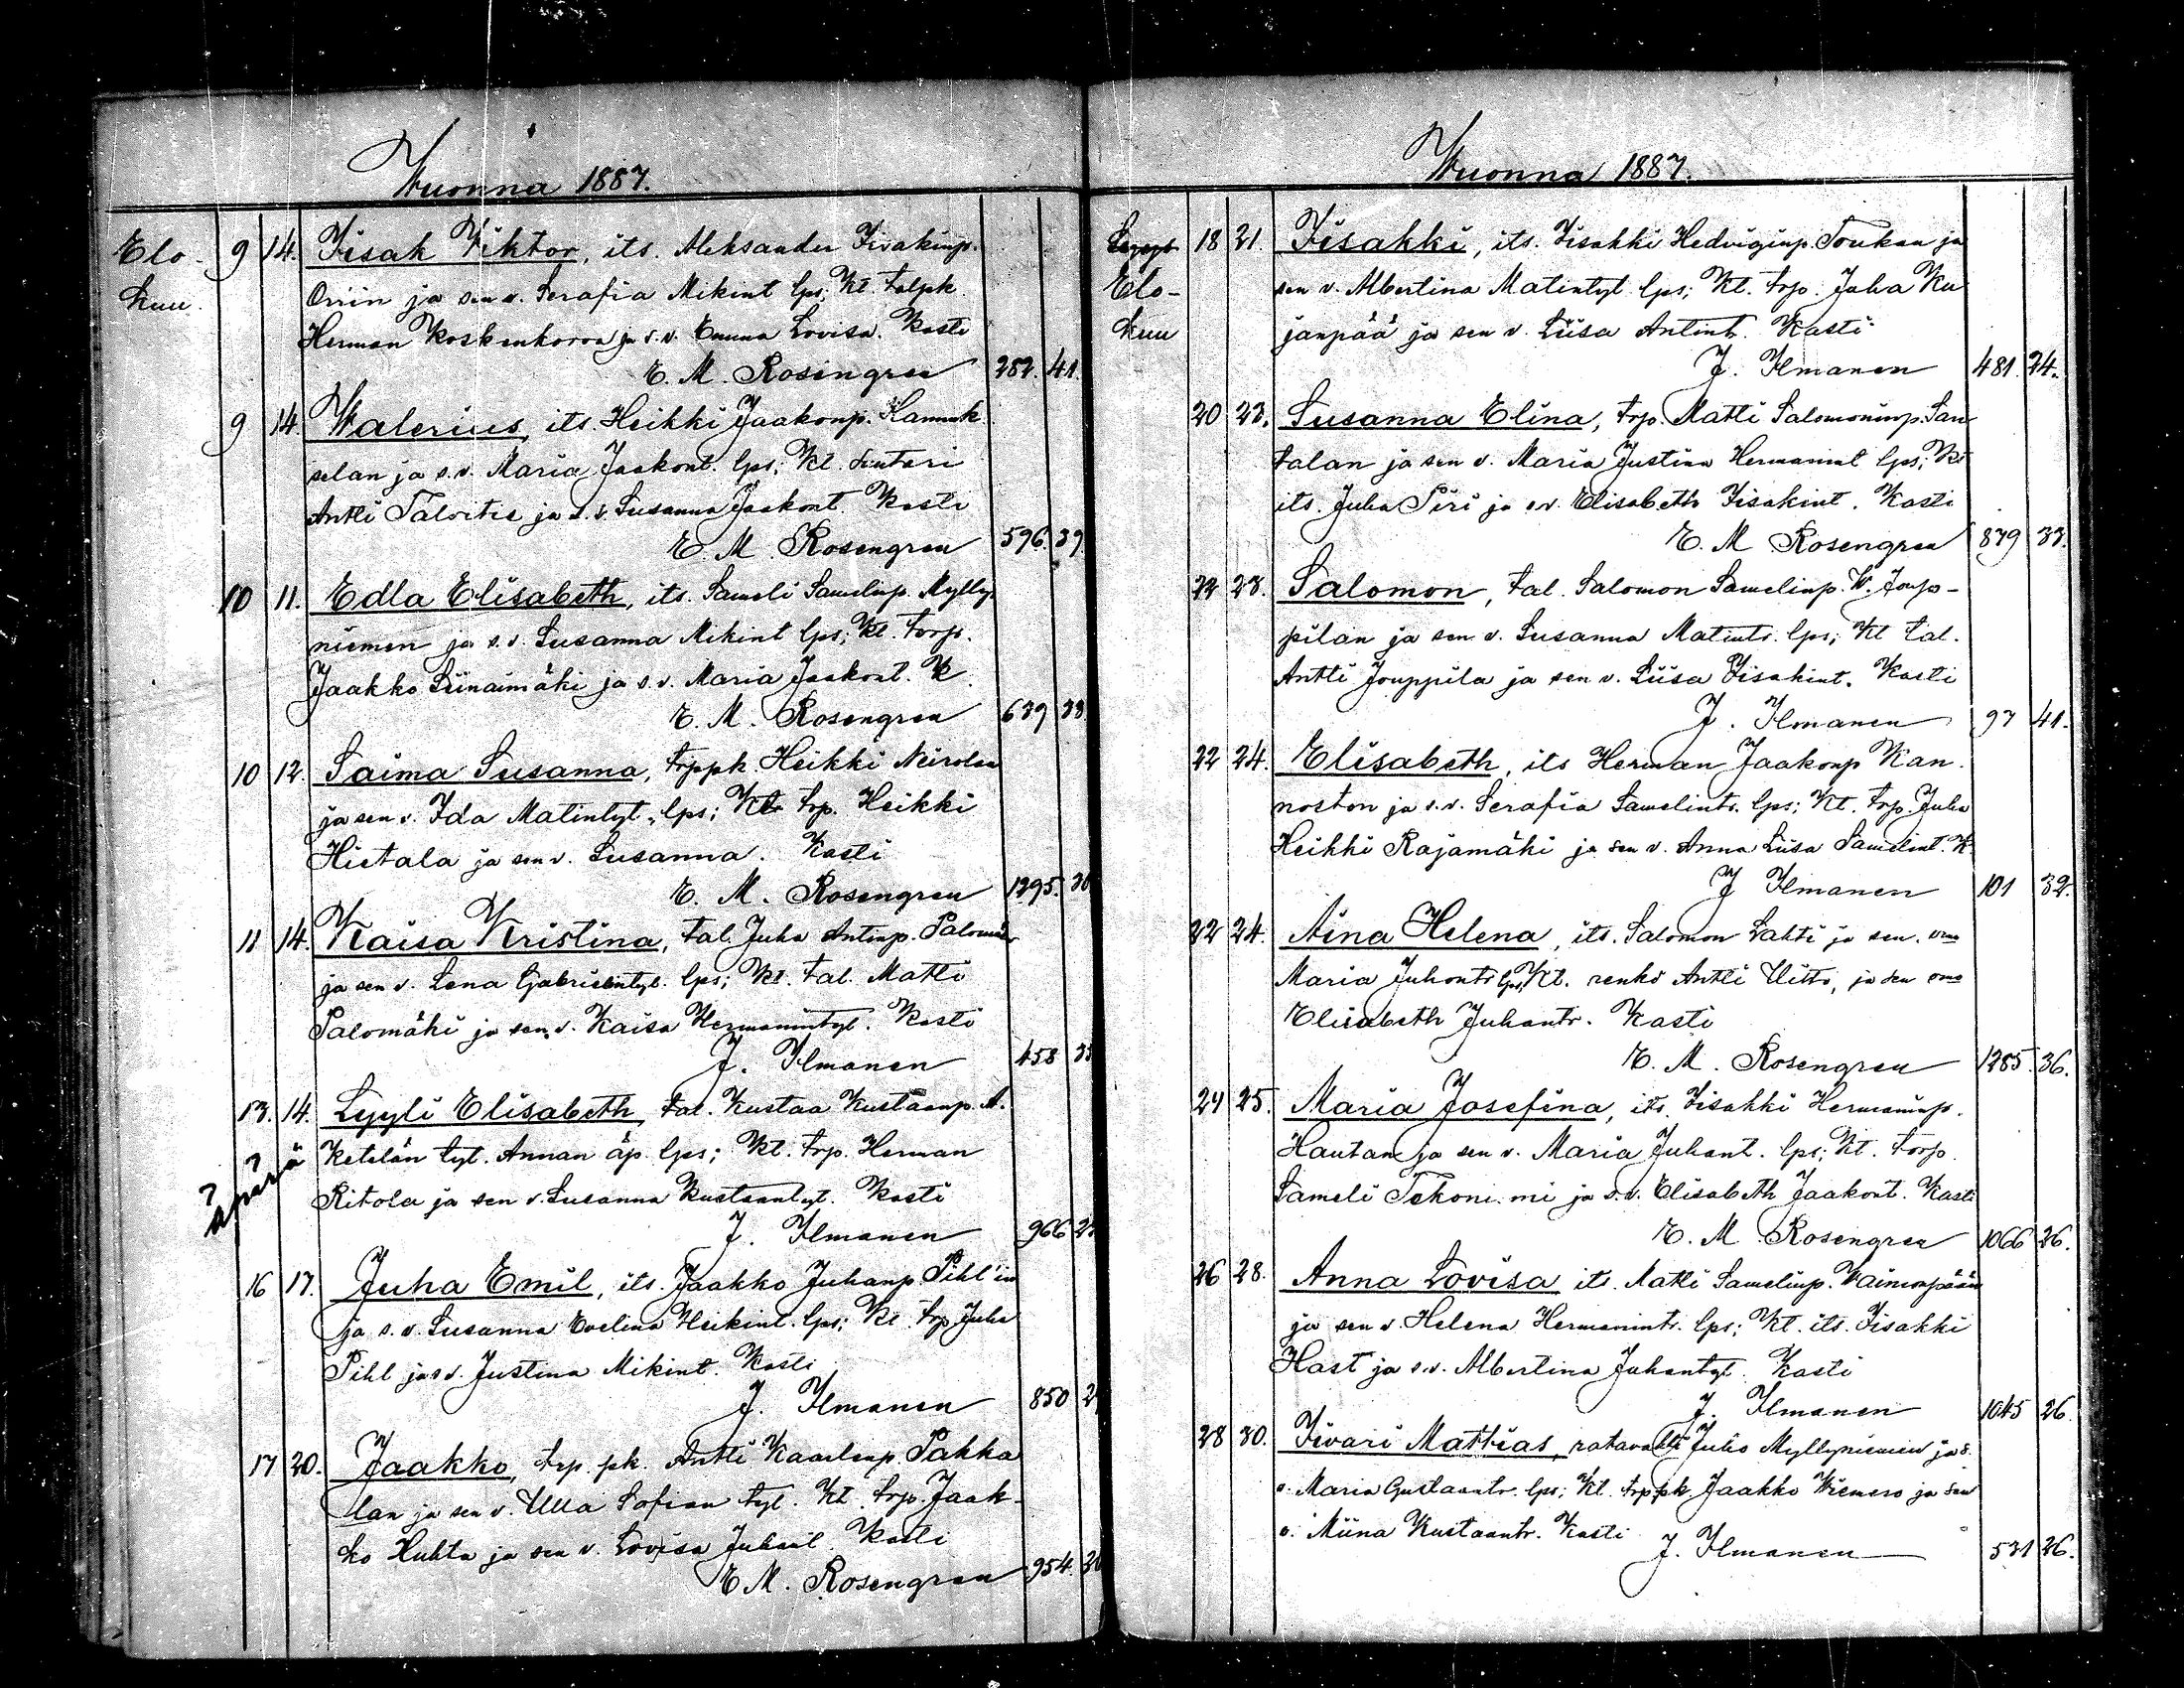 Wuonna 1887.
Elo-
kuu.
9 14. Iisak Viktor, its. Aleksander Iisakinp.
Orrin ja sen v. Serafia Mikint lps; Kt. talpk.
Herman Koskenkorva ja s.v. Emma Lovisa. Kasti
E. M. Rosengren 252. 41.
9 14. Walerius, its. Heikki Jaakonp. Kannuk
selan ja s.v. Maria Jaakont. lps; Kt. suutari
Antti Talvitie ja s.v. Susanna Jaakont. Kasti
E. M. Rosengren 596. 39.
10 11. Edla Elisabeth, its. Sameli Samelinp. Mylly
niemen ja s.v. Susanna Mikint lps; Kt. torp.
Jaakko Liinamäki ja s.v. Maria Jaakont. K.
E. M. Rosengren 639 33
10 12. Saima Susanna, trppk. Heikki Neirolan
ja sen v. Ida Matintyt. lps; Kt. trp. Heikki
Hietala ja sen v. Susanna. Kasti
E. M. Rosengren 1295.
11 14. Kaisa Kristina, tal. Juha Antinp. Palomäen
ja sen v. Lena Gabrielintyt. lps; Kt. tal. Matti
Palomäki ja sen v. Kaisa Hermanintyt. Kasti
J. Ilmanen 458
13. 14. Lyyli Elisabeth, tal. Kustaa Kustaanp. A.
? äpärä ?
Ketelän tyt. Annan äp. lps; Kt. trp. Herman
Ritola ja sen v. Susanna Kustaantyt. Kasti
J. Ilmanen 966
16 17. Juha Emil, its. Jaakko Juhanp. Pihl'in
ja s.v. Susanna Evelina Heikint. lps; Kt. trp Juha
Pihl ja s.v. Justina Mikint. Kasti
J. Ilmanen 850
17 20. Jaakko, trp. pk. Antti Kaarlenp. Pakka
lan ja sen v. Ulla Sofian tyt. Kt. trp. Jaak-
ko Huhta ja sen v. Lovisa Juhant. Kasti
E. M. Rosengren 954.
Wuonna 1887.
Elo-
kuu
18 21. Iisakki, its. Iisakki Hedviginp. Toukan ja
sen v. Albertina Matintyt. lps; Kt. trp. Juha Ku
janpää ja sen v. Liisa Antint. Kasti
J. Ilmanen 481. 24.
20 23. Susanna Elina, trp. Matti Salomoninp. San
talan ja sen v. Maria Justina Hermanint lps; Kt
its. Juha Piri ja s.v. Elisabeth Iisakint. Kasti
E. M. Rosengren 879 33.
22 23. Salomon, tal. Salomon Samelinp. W. Joup-
pilan ja sen v. Susanna Matintr. lps; Kt tal.
Antti Jouppila ja sen v. Liisa Iisakint. Kasti
J. Ilmanen 97 41.
22 24. Elisabeth, its Herman Jaakonp Kan
noston ja s.v. Serafia Samelintr. lps; Kt. trp. Juha
Heikki Rajamäki ja sen v. Anna Liisa Samelint. K.
J Ilmanen 101 32.
22 24. Aina Helena, its. Salomon Lahti ja sen vmo
Maria Juhontr lps, Kt. renki Antti Uitto, ja sen vmo
Elisabeth Juhantr. Kasti
E. M. Rosengren 1285. 36.
24 25. Maria Josefina, its. Iisakki Hermaninp.
Hautan ja sen v. Maria Juhant. lps; Kt. torp.
Sameli Tekoniemi ja s.v. Elisabeth Jaakont. Kasti
E. M. Rosengren 1066 26.
26 28. Anna Lovisa its. Matti Samelinp. Vainionpään
ja sen v. Helena Hermanintr. lps; Kt. its. Iisakki
Hast ja s.v. Albertina Juhantyt. Kasti
J. Ilmanen 1045 26.
28 30. Iivari Mattias, ratavahti Juho Myllyniemen ja s.
v. Maria Gustaantr. lps; Kt. trppk Jaakko Niemero ja sen
v. Miina Kustaantr. Kasti
J. Ilmanen 531 26.